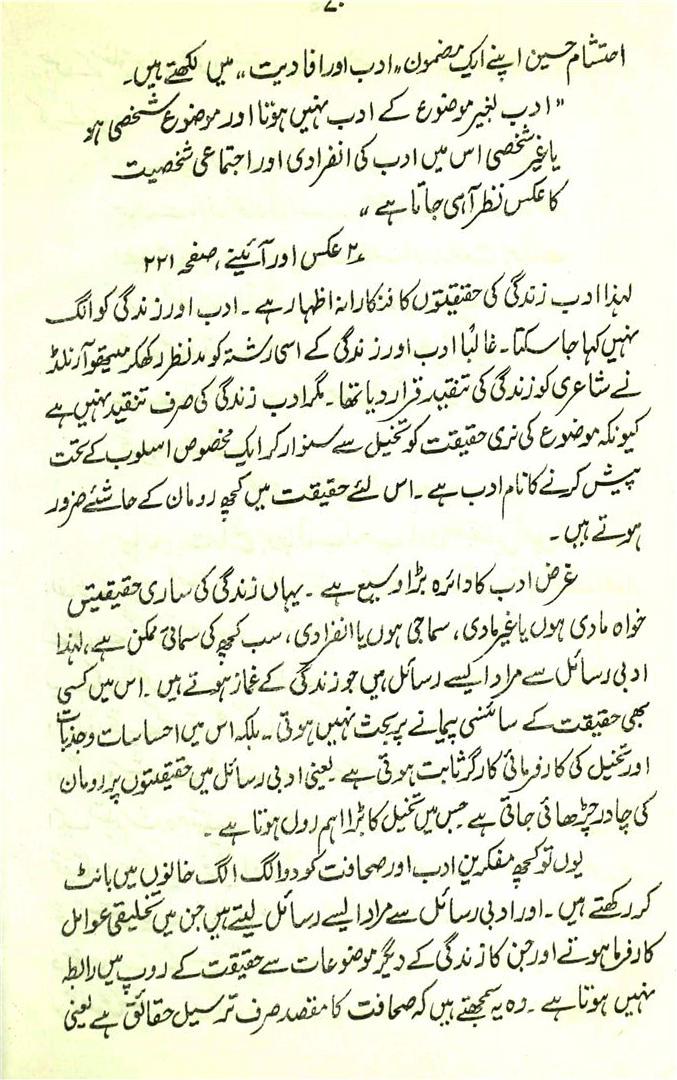 ۷۰
احتشام حسین اپنے ایک مضمون "ادب اور افادیت" میں لکھتے ہیں۔
"ادب بغیر موضوع کے ادب نہیں ہوتا اور موضوع شخصی ہو
یا غیر شخصی اس میں ادب کی انفرادی اور اجتماعی شخصیت
کا عکس نظر آہی جاتا ہے"
۲؎ عکس اور آئینے، صفحہ ۲۲۱
لہٰذا ادب زندگی کی حقیقیتوں کا فنکارانہ اظہار ہے۔ ادب اور زندگی کو الگ
نہیں کہا جاسکتا۔ غالباً ادب اور زندگی کے اسی رشتہ کو مدنظر رکھکر میتھو آرنلڈ
نے شاعری کو زندگی کی تنقید قرار دیا تھا۔ مگر ادب زندگی کی صرف تنقید نہیں ہے
کیونکہ موضوع کی نری حقیقت کو تخیل سے سنوار کر ایک مخصوص اسلوب کے تحت
پیش کرنے کا نام ادب ہے۔ اس لئے حقیقت میں کچھ رومان کے حاشئے ضرور
ہوتے ہیں۔
غرض ادب کا دائرہ بڑا وسیع ہے۔ یہاں زندگی کی ساری حقیقیتیں
خواہ مادی ہوں یا غیر مادی، سماجی ہوں یا انفرادی، سب کچھ کی سمائی ممکن ہے، لہٰذا
ادبی رسائل سے مراد ایسے رسائل ہیں جو زندگی کے غماز ہوتے ہیں۔ اس میں کسی
بھی حقیقت کے سائنسی پیمانے پر بحث نہیں ہوتی۔ بلکہ اس میں احساسات وجذبات
اور تخیل کی کارفرمائی کارگر ثابت ہوتی ہے یعنی ادبی رسائل میں حقیقتوں پر رومان
کی چادر چڑھائی جاتی ہے جس میں تخیل کا بڑا اہم رول ہوتا ہے۔
یوں تو کچھ مفکرین ادب اور صحافت کو دو الگ الگ خانوں میں بانٹ
کر رکھتے ہیں۔ اور ادبی رسائل سے مراد ایسے رسائل لیتے ہیں جن میں تخلیقی عوامل
کارفرما ہوتے اور جن کا زندگی کے دیگر موضوعات سے حقیقت کے روپ میں رابطہ
نہیں ہوتا ہے۔ وہ یہ سمجھتے ہیں کہ صحافت کا مقصد صرف ترسیل حقائق ہے یعنی